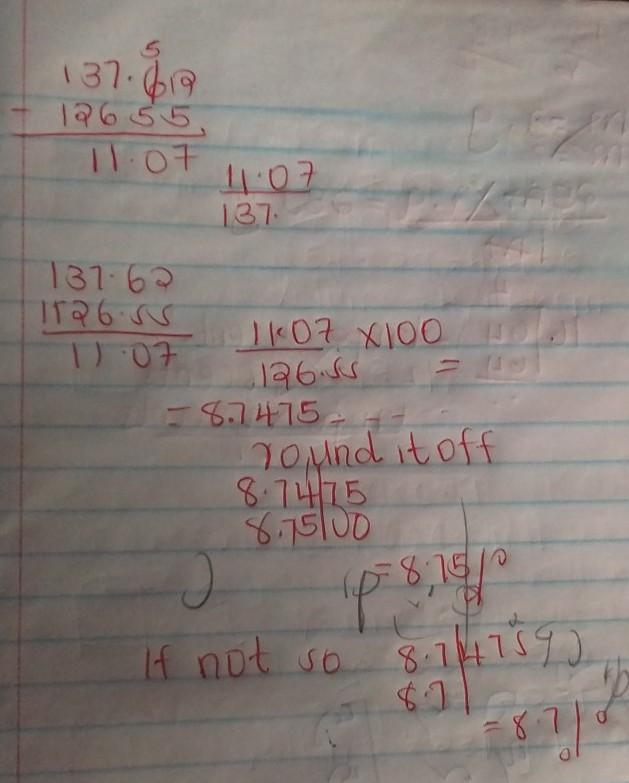 5
137.612
- 12655
11.07
11.07
137.
137.62
126.55
11.07
11.07 x100
126.55 =
= 8.7475 - - -
round it off
8.74|75
8.75|00
= 8.75%
If not so 8.7|475
8.7|
= 8.7%